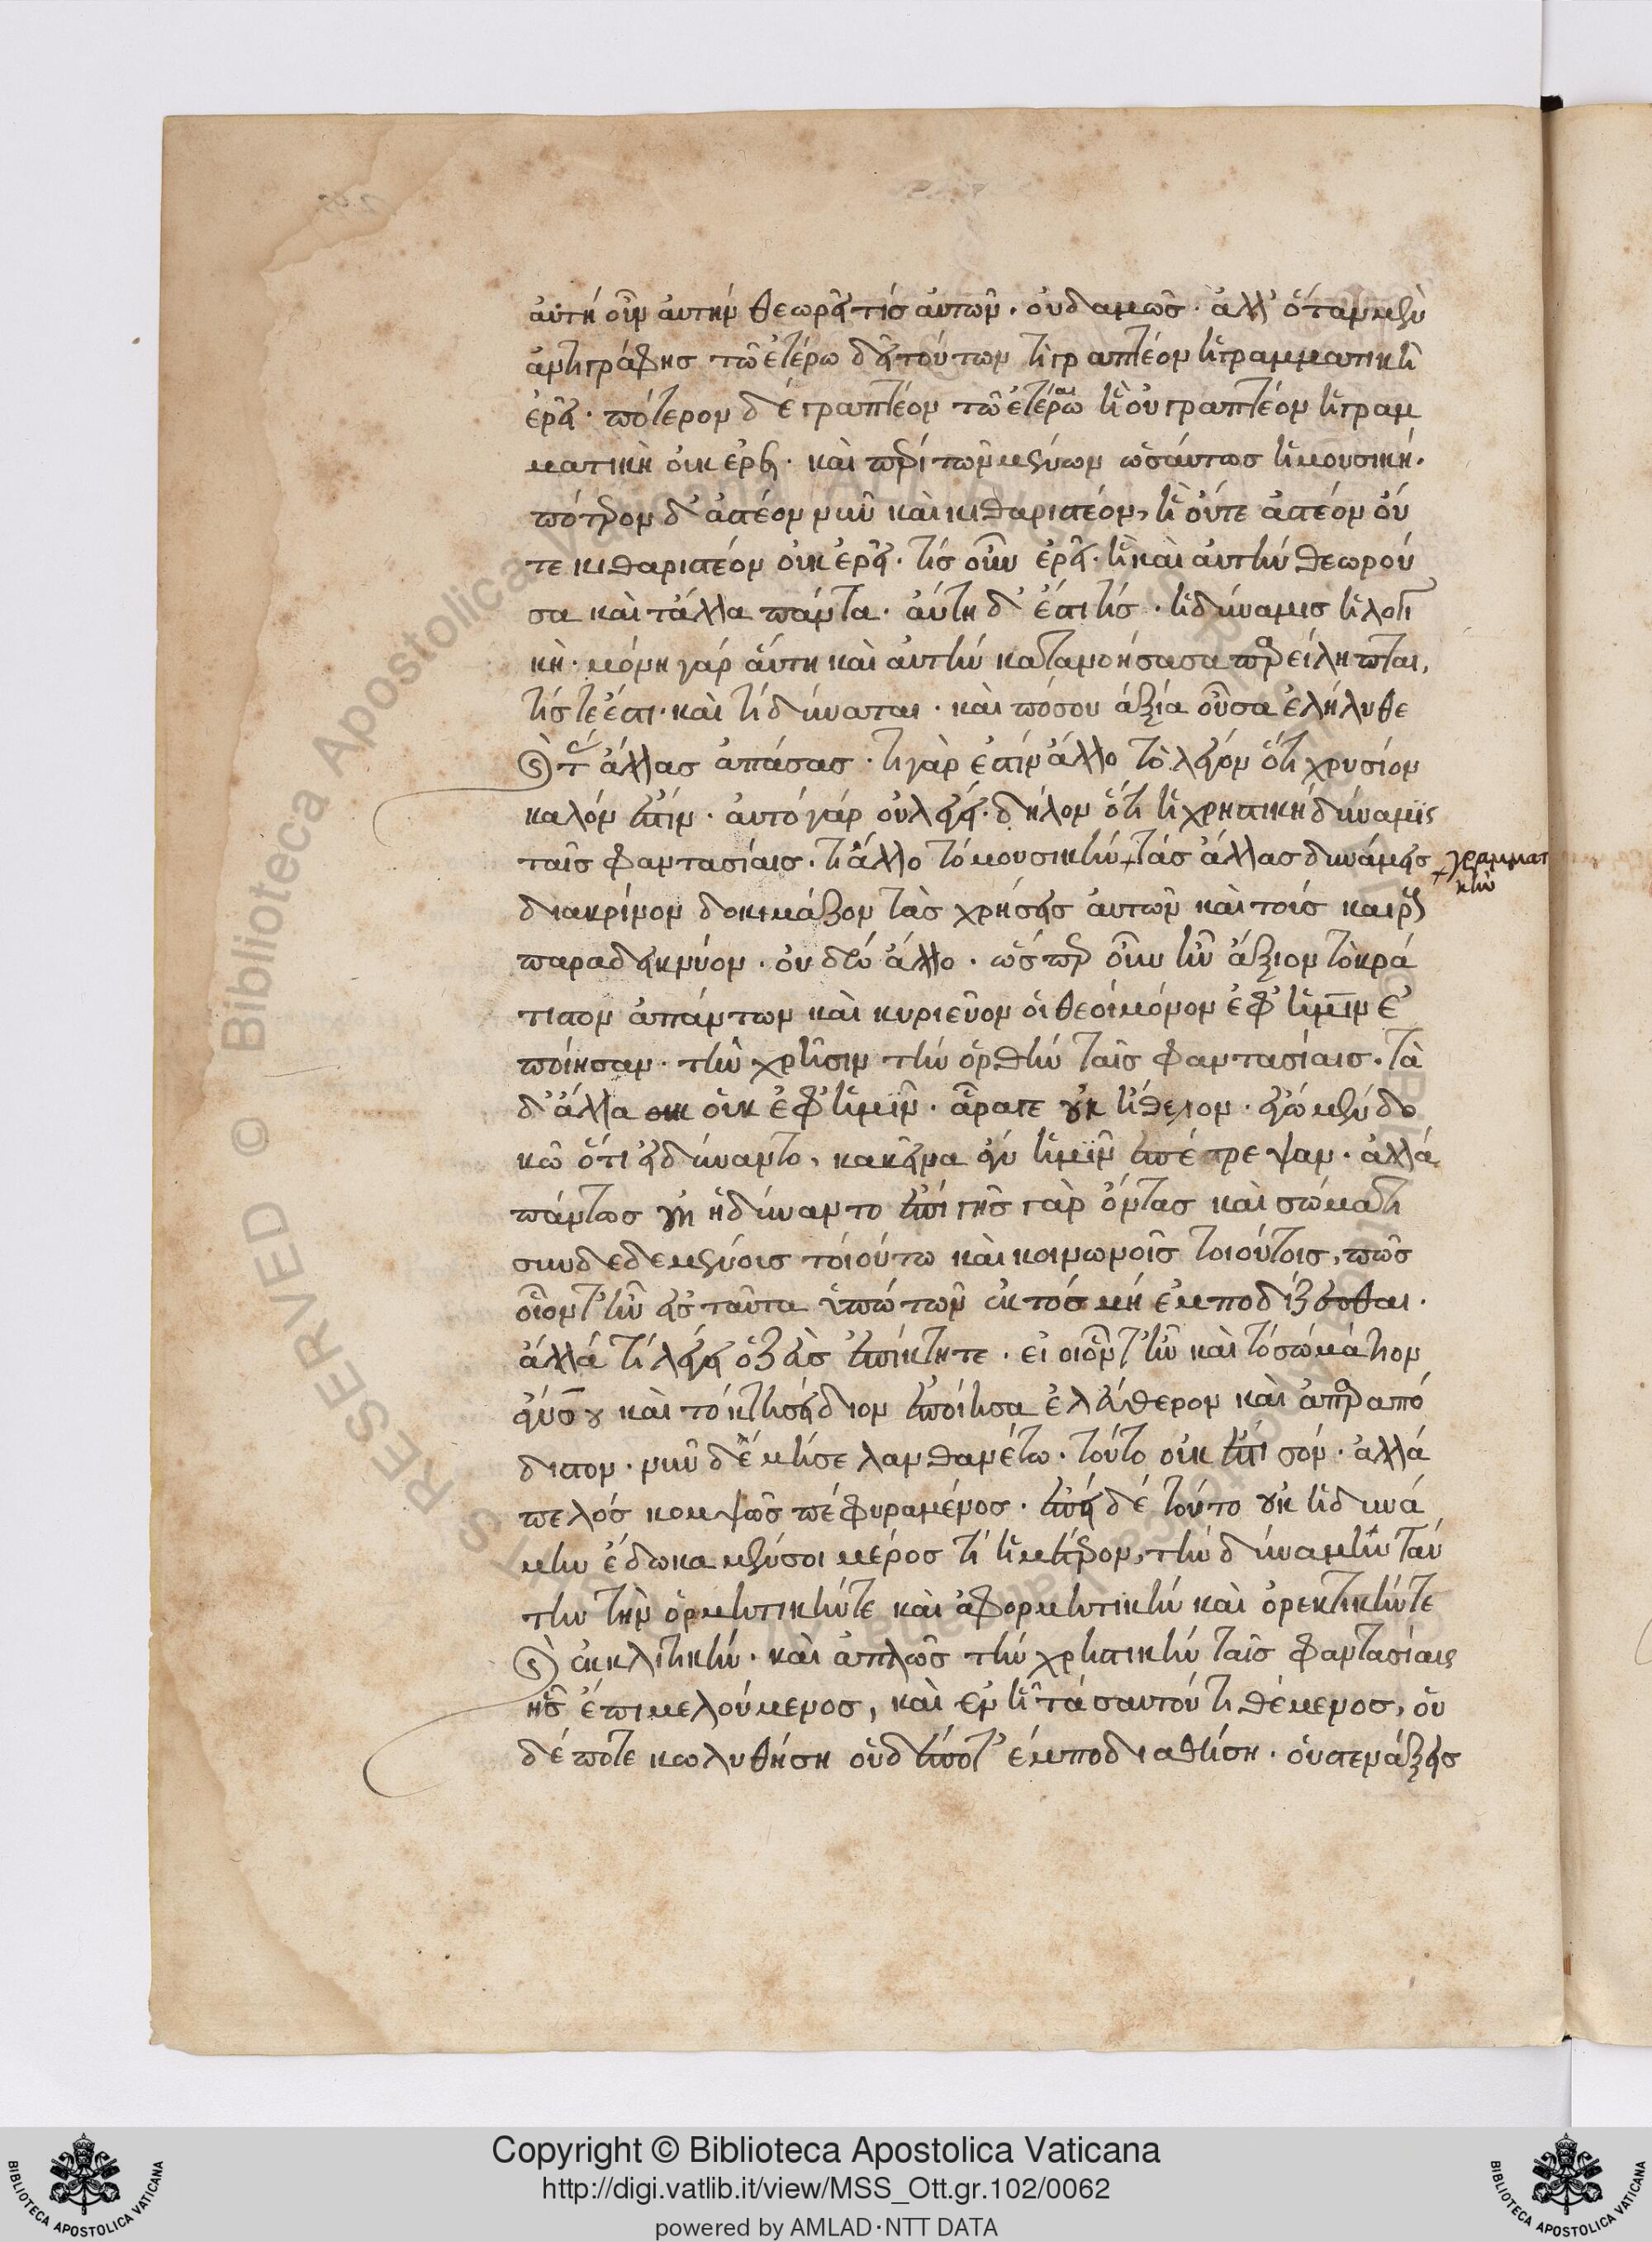 αὐτὴ οὖν αὑτὴν θεωρεῖ τὶς αὐτῶν. οὐδαμῶς. ἀλλ' ὅταν μὲν
ἀντιγράφης τῶ ἑτέρω δεῖ τούτων τί γραπτέον ἡ γραμματικὴ
ἐρεῖ. πότερον δὲ γραπτέον τῶ ἑτέρω ἢ οὐ γραπτέον ἡ γραμ
ματικὴ οὐκ ἐρεῖ. καὶ περὶ τῶν μελῶν ὡσαύτως ἡ μουσική.
πότερον δ' ἀστέον νῦν καὶ κιθαριστέον, ἢ οὔτε ἀστέον οὔ
τε κιθαριστέον οὐκ ἐρεῖ. τίς οὖν ἐρεῖ. ἡ καὶ αὑτὴν θεωροῦ
σα καὶ τἄλλα πάντα. αὕτη δ' ἐστὶ τίς. ἡ δύναμις ἡ λογι
κή. μόνη γὰρ αὕτη καὶ αὑτὴν κατανοήσασα παρείληπται,
τίς τέ ἐστι. καὶ τί δύναται. καὶ πόσου ἀξία οὖσα ἐλήλυθε
καὶ τὰς ἄλλας ἁπάσας. τί γὰρ ἐστὶν ἄλλο τὸ λέγον ὅτι χρυσίον
καλόν ἐστιν. αὐτὸ γὰρ οὐ λέγει. δῆλον ὅτι ἡ χρηστικὴ δύναμις
ταῖς φαντασίαις. τί ἄλλο τὸ μουσικὴν + τὰς ἄλλας δυνάμεις + γραμματ
κὴν
διακρίνον δοκιμάζον τὰς χρήσεις αὐτῶν καὶ τοὺς καιροὺς
παραδεικνύον. οὐδὲν ἄλλο. ὥσπερ οὖν ἦν ἄξιον τὸ κρά
τιστον ἁπάντων καὶ κυριεῦον οἱ θεοὶ μόνον ἐφ' ἡμῖν ἐ
ποίησαν. τὴν χρῆσιν τὴν ὀρθὴν ταῖς φαντασίαις. τὰ
δ' ἄλλα οὐκ ἐφ' ἡμῖν. ἆρά γε οὐκ ἤθελον. ἐγὼ μὲν δο
κῶ ὅτι εἰ ἐδύναντο, κἀκεῖνα ἂν ἡμῖν ἐπέτρεψαν. ἀλλὰ
πάντως οὐκ ἠδύναντο ἐπὶ γῆς γὰρ ὄντας καὶ σώματι
συνδεδεμένοις τοιούτω καὶ κοινωνοῖς τοιούτοις, πῶς
οἷόν τ' ἦν εἰς ταῦτα ὑπὸ τῶν ἐκτὸς μὴ ἐμποδίζεσθαι.
ἀλλὰ τί λέγει ὁ ζεὺς ἐπίκτητε. εἰ οἷόν τ' ἦν καὶ τὸ σωμάτιον
ἄν σου καὶ τὸ κτησείδιον ἐποίησα ἐλεύθερον καὶ ἀπαραπό
διστον. νῦν δὲ μή σε λανθανέτω. τοῦτο οὐκ ἔστι σόν. ἀλλὰ
πηλὸς κομψῶς πεφυραμένος. ἐπεὶ δὲ τοῦτο οὐκ ἠδυνά
μην ἐδώκαμέν σοι μέρος τι ἡμέτερον, τὴν δύναμιν ταύ
την τὴν ὁρμητικήν τε καὶ ἀφορμητικὴν καὶ ὀρεκτικήν τε
καὶ ἐκκλιτικήν. καὶ ἁπλῶς τὴν χρηστικὴν ταῖς φαντασίαις
ἧς ἐπιμελούμενος, καὶ ἐν ᾗ τὰ σαυτοῦ τιθέμενος, οὐ
δέποτε κωλυθήση οὐδέποτ' ἐμποδισθήση. οὐ στενάξεις
Copyright © Biblioteca Apostolica Vaticana
http://digi.vatlib.it/view/MSS_Ott.gr.102/0062
powered by AMLAD·NTT DATA
BIBLIOTECA APOSTOLICA VATICANA
BIBLIOTECA APOSTOLICA VATICANA